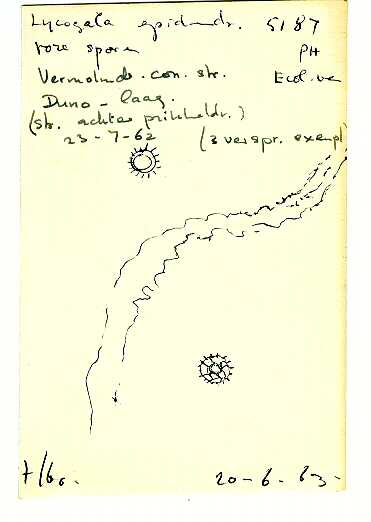 Lycogala epidendr. 5187
roze sporen PH
Vermolmde con. str. Ecol. ver
Duno - laag.
(str. achter prikkeldr.)
23-7-62 (3 verspr. exempl
20-6-63-